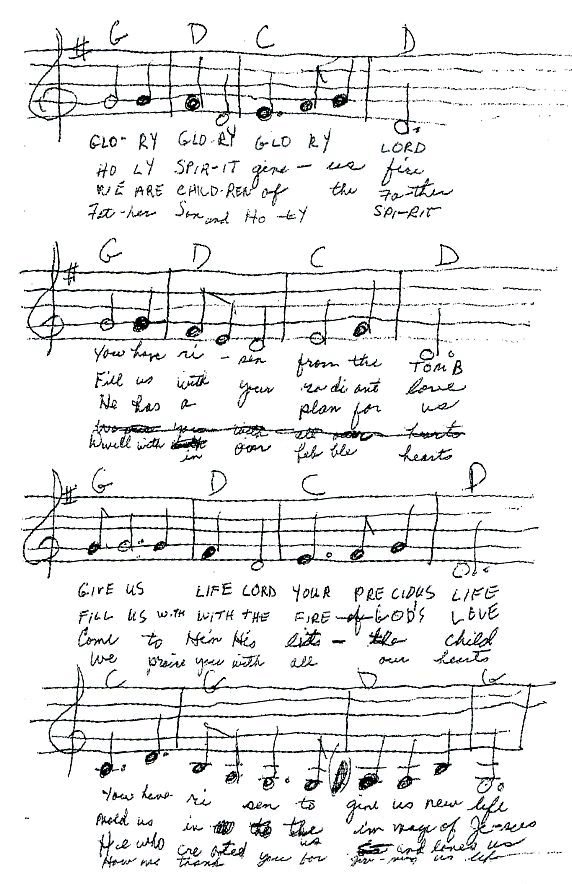 G D C D
GLO-RY GLO-RY GLO RY LORD
HO LY SPIR-IT give - us fire
WE ARE CHILD-REN of the Fa-ther
Fat-her Son and Ho-LY SPI-RIT
G D C D
You have ri - sen from the TOMB
Fill us with your radi ant love
He has a plan for us
Dwell with in our fee ble hearts
G D C D
GIVE US LIFE LORD YOUR PRECIOUS LIFE
FILL US WITH WITH THE FIRE of GOD'S LOVE
Come to Him His child
We praise you with all our hearts
C G D G
You have ri sen to give us new life
Mold us in the im mage of Je-sus
He who cre ated us and loves us
How we thank you for us life